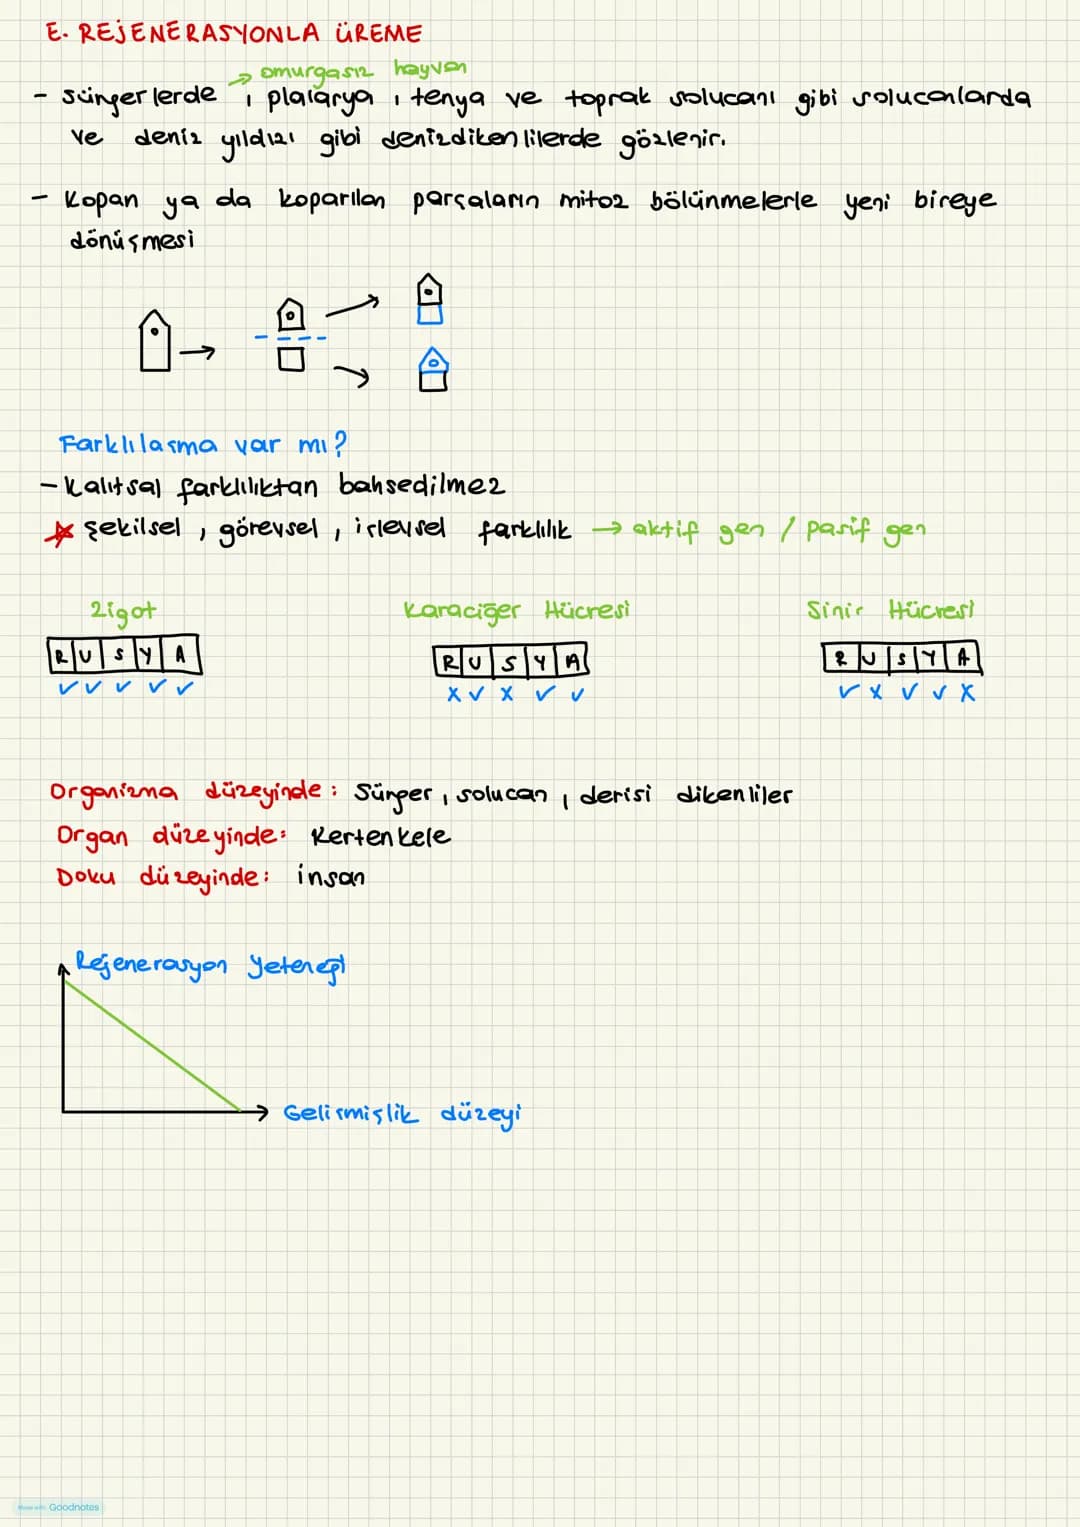 E. REJENERASYONLA ÜREME
→ omurgasız hayvan
- süngerlerde, plalarya, tenya ve toprak solucanı gibi solucanlarda
ve deniz yıldızı gibi denizdikenlilerde gözlenir.
- Kopan ya da koparılan parçaların mitoz bölünmelerle yeni bireye
dönüşmesi
Farklılaşma var mı?
- Kalıtsal farklılıktan bahsedilmez
şekilsel, görevsel, işlevsel farklılık → aktif gen / pasif gen
Zigot Karaciğer Hücresi Sinir Hücresi
R U S Y A R U S Y A R U S Y A
✓ ✓ ✓ ✓ ✓ X ✓ X ✓ ✓ ✓ X ✓ ✓ X
Organizma düzeyinde: Sünger, solucan, derisi dikenliler
Organ düzeyinde: Kertenkele
Doku düzeyinde: insan
Rejenerasyon Yeteneği
Gelişmişlik düzeyi
Made with Goodnotes